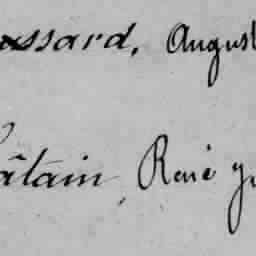 ssard, August
âtain, René